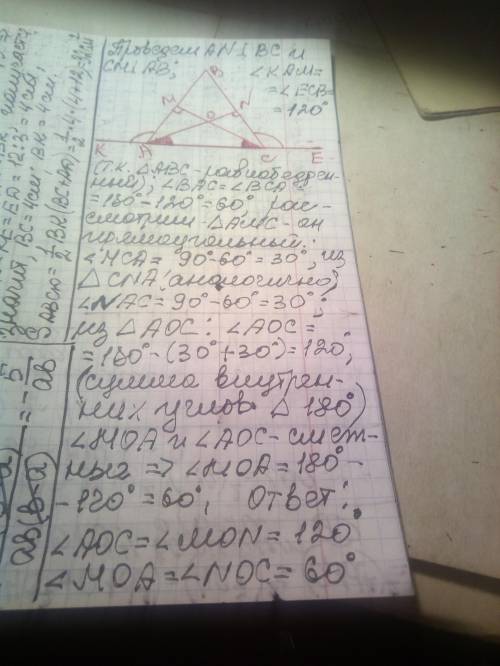 Проведем AN⊥BC и
CM⊥AB;
∠KAM=
=∠ECB=
=120°
B
M
N
O
K
A
C
E
(т.к. △ABC - равнобедрен-
ный), ∠BAC=∠BCA=
=180-120°=60°, рас-
смотрим △AMC-он
прямоугольный:
∠MCA= 90°-60°=30°, из
△CNA (аналогично)
∠NAC=90°-60°=30°;
из △AOC: ∠AOC=
=180°-(30°+30°)=120°,
(сумма внутрен-
них углов △ 180°)
∠MOA и ∠AOC-смеж-
ные => ∠MOA=180°-
-120°=60°, Ответ:
∠AOC=∠MON=120°
∠MOA=∠NOC=60°
=ED=12:3=4см,
значит, BC=4см; BK=4см.
S ABCD=1/2 BK(BC+AD)=1/2·4·(4+12)=
ab(b-a)
=-5/ab